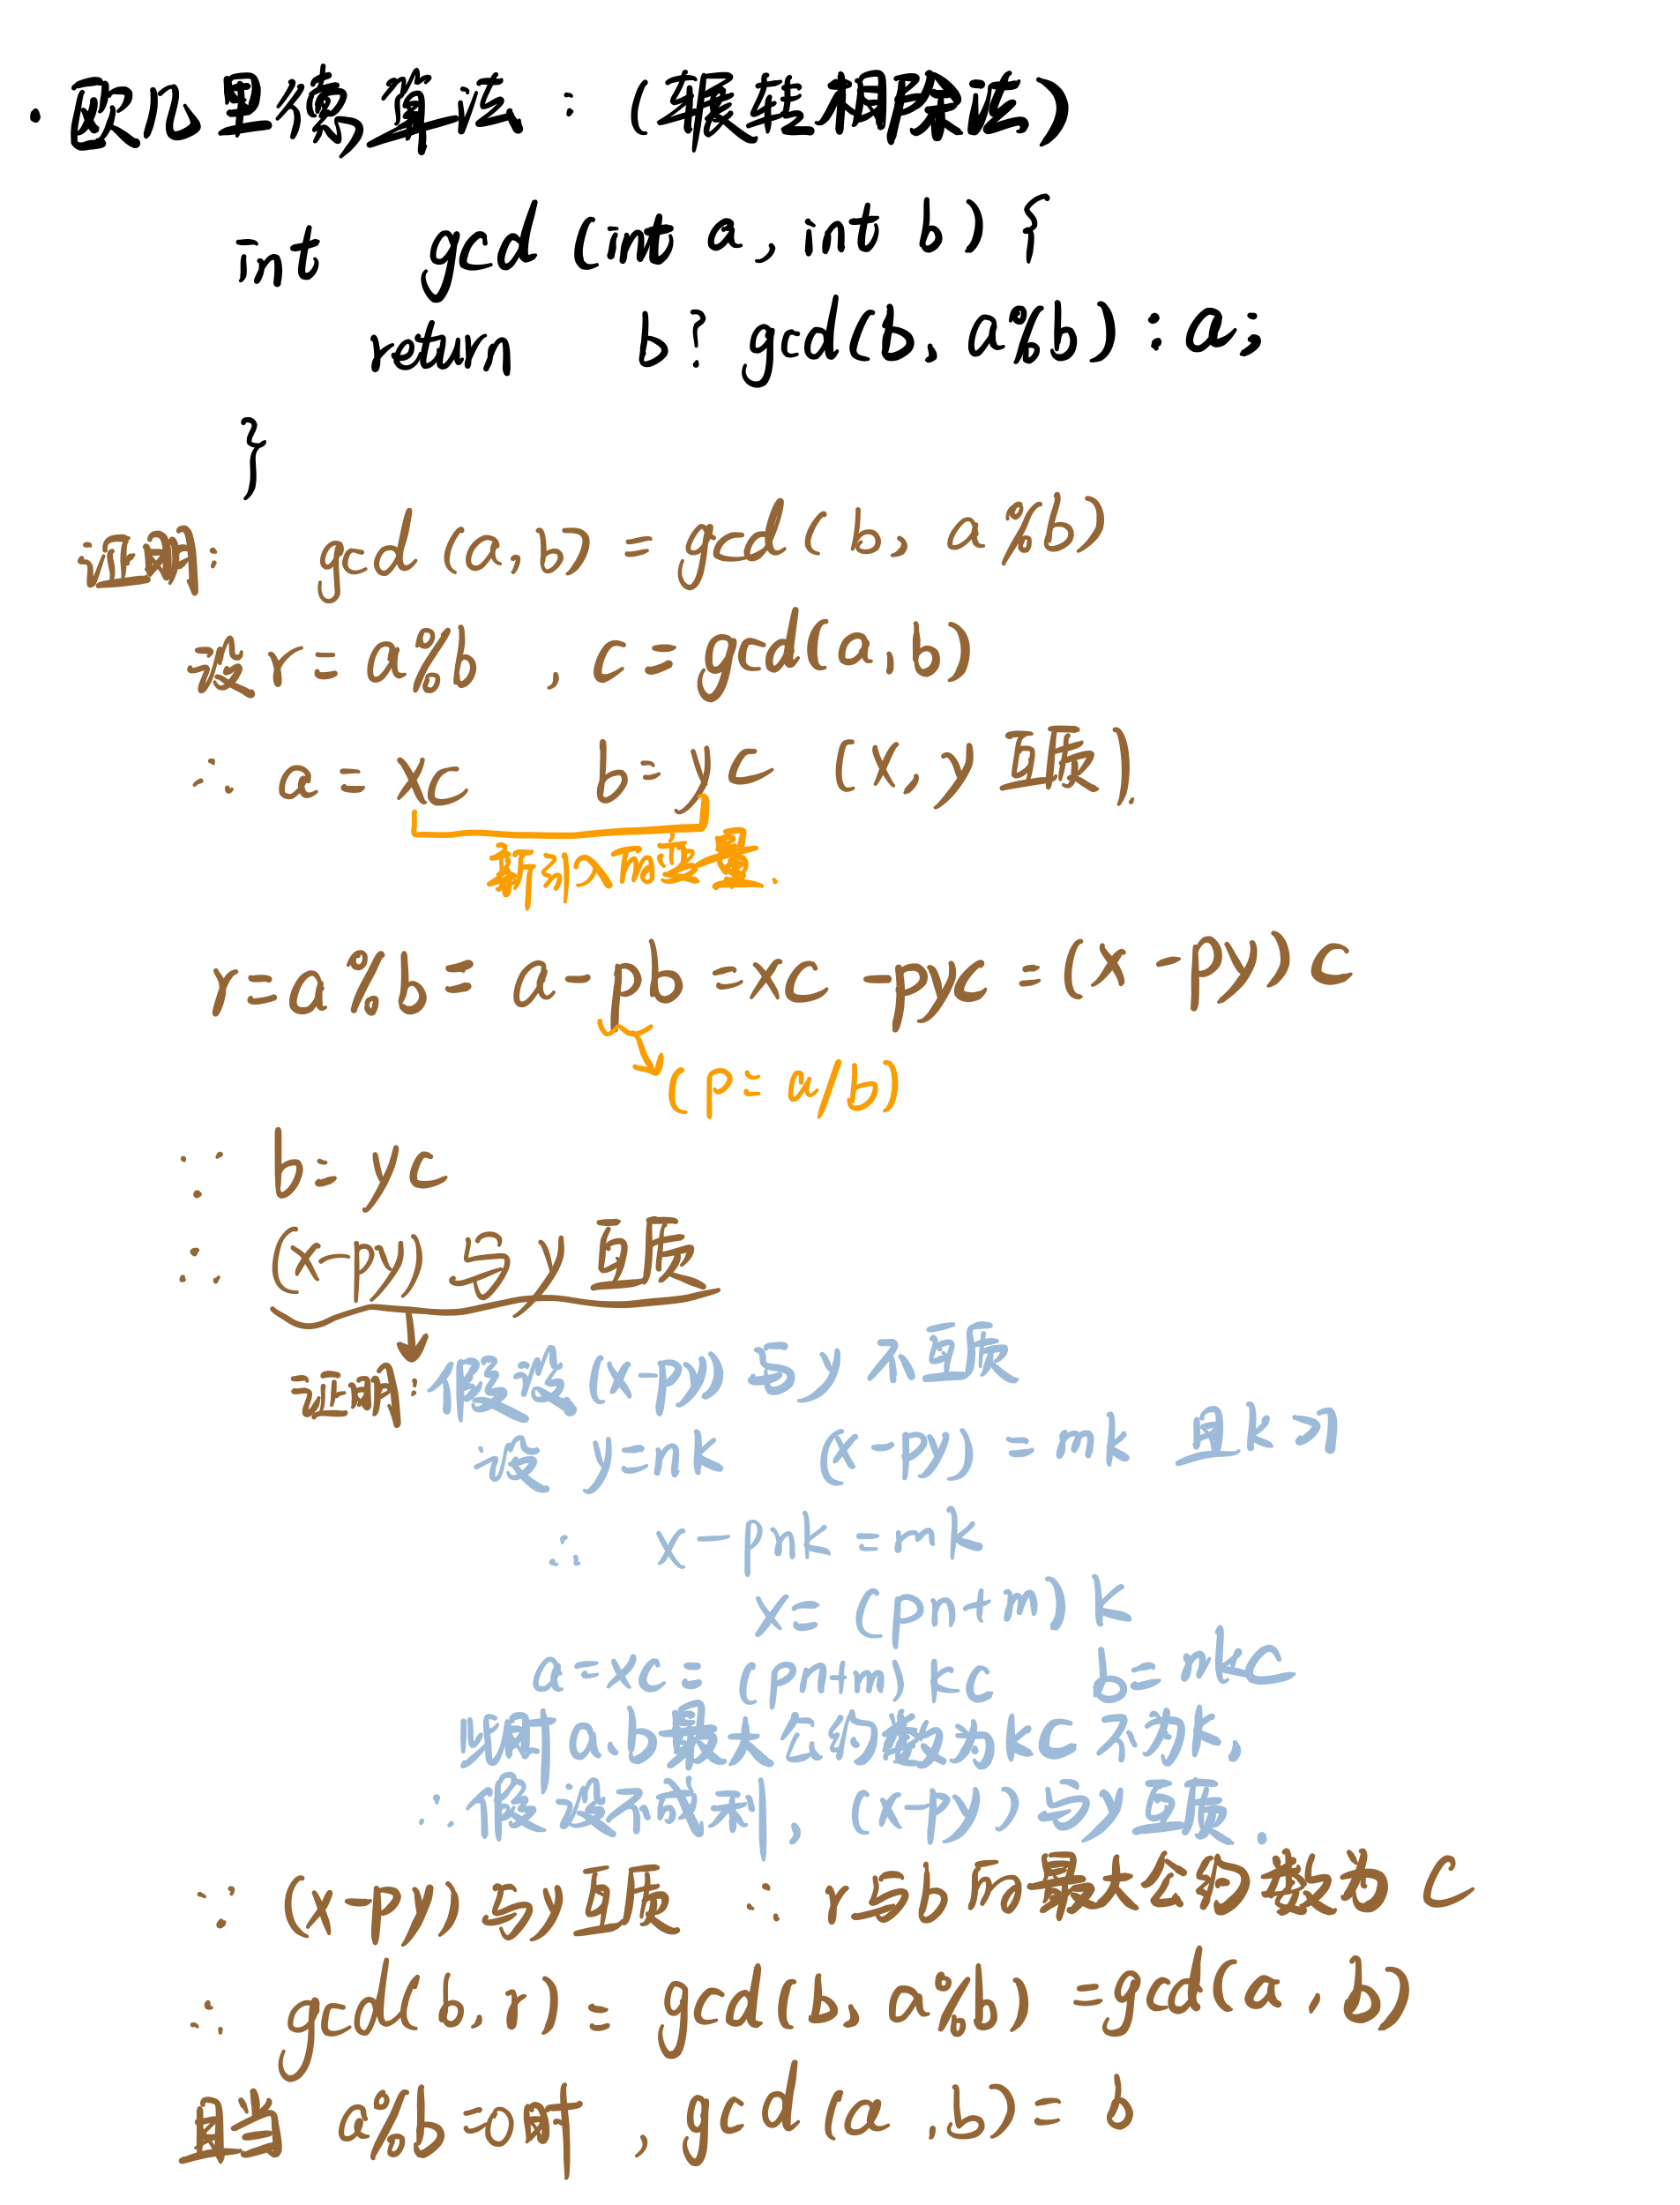 · 欧几里得算法：（辗转相除法）
int gcd (int a, int b) {
return b? gcd(b, a%b) : a;
}
证明： gcd (a, b) = gcd ( b, a%b)
设 r = a%b , c = gcd(a, b)
∴ a = xc b = yc (x, y 互质).
新引入的变量.
r = a%b = a - pb = xc - pyc = (x - py) c
( p = a/b )
∵ b = yc
∴ (x-py) 与 y 互质
证明: 假设 (x-py) 与 y 不互质
设 y=nk (x-py) = mk 且 k>1
∴ x - pnk = mk
x = (pn+m) k
a = xc = (pn+m) kc b = nkc
此时 a、b 最大公约数为 kc 不为 k,
∴ 假设不成利, (x-py) 与 y 互质.
∵ (x-py) 与 y 互质 ∴ r 与 b 的最大公约数为 C
∴ gcd(b, r) = gcd (b, a%b) = gcd(a, b)
且当 a%b = 0 时 , gcd (a, b) = b